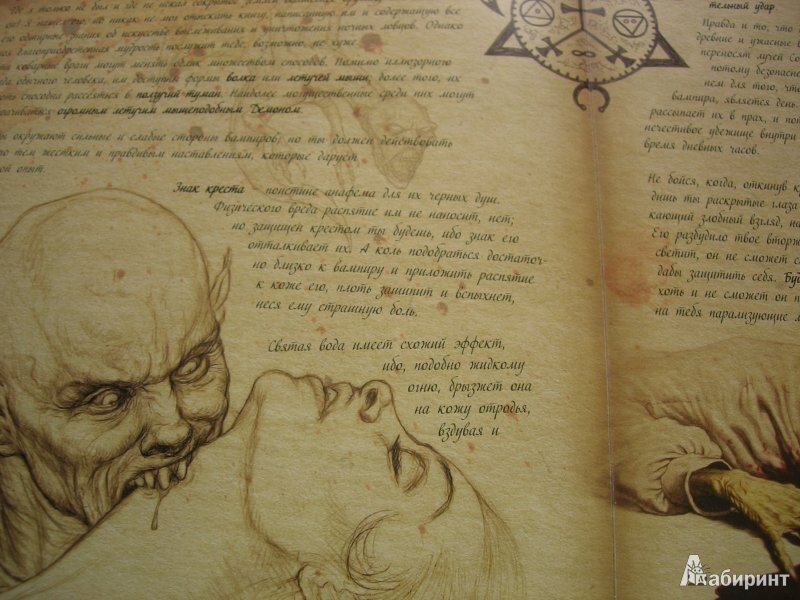 где я только не был и где не искал сокрытое
я нашел его, но никак не мог отыскать книгу, написанную им и содержащую все
его обширные знания об искусстве выслеживания и уничтожения ночных ловцов. Однако
благоприобретенная мудрость послужит тебе, возможно, не хуже.
коварные враги могут менять облик множеством способов. Помимо иллюзорного
обычного человека, им доступны формы волка или летучей мыши; более того, их
способна рассеяться в ползучий туман. Наиболее могущественные среди них могут
огромным летучим мышеподобным Демоном.
окружают сильные и слабые стороны вампиров, но ты должен действовать
по тем жестким и правдивым наставлениям, которые дарует
опыт.
Знак креста поистине анафема для их черных душ.
Физического вреда распятие им не наносит, нет;
но защищен крестом ты будешь, ибо знак его
отталкивает их. А коль подобраться достаточ-
но близко к вампиру и приложить распятие
к коже его, плоть зашипит и вспыхнет,
неся ему страшную боль.
Святая вода имеет схожий эффект,
ибо, подобно жидкому
огню, брызжет она
на кожу отродья,
вздувая и
тельный удар
Правда и то, что
древние и ужасные
переносят лучей Со
потому безопасне
нем для того, что
вампира, является день.
рассыпает их в прах, и пот
нечестивое убежище внутри
время дневных часов.
Не бойся, когда, откинув к
дишь ты раскрытые глаза
кающий злобный взгляд, на
Его разбудило твое вторж
светит, он не сможет с
дабы защитить себя. Буд
хоть и не сможет он п
на тебя парализующие
Лабиринт